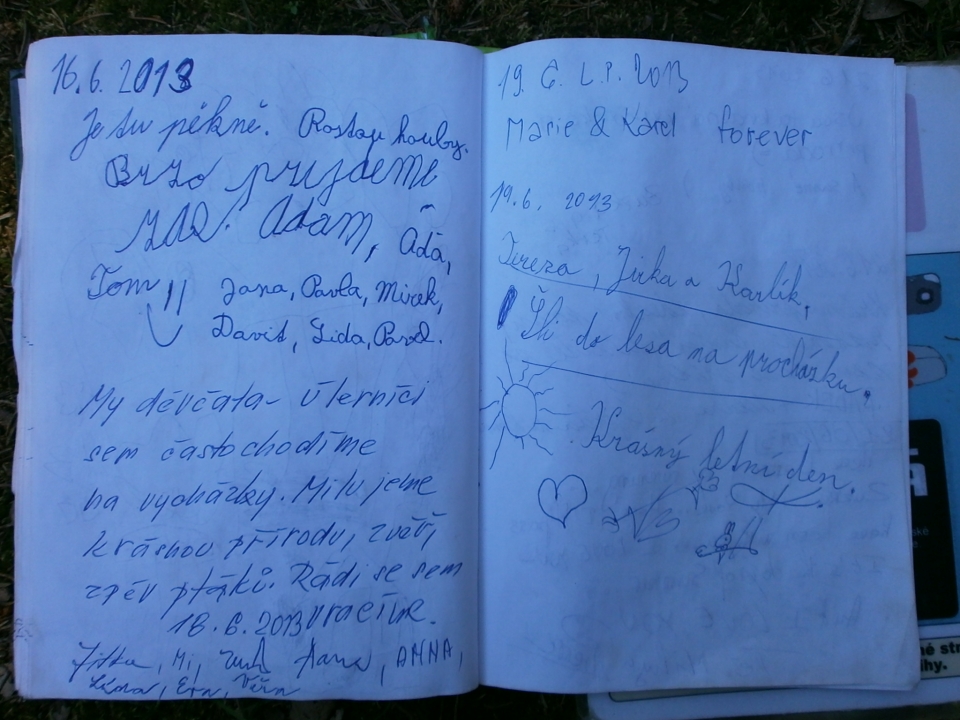 16.6. 2013
Je tu pěkně. Rostou houby.
Brzo přijdeme
zas. Adam, Áďa,
Tom
Jana, Pavla, Mirek,
David, Lída, Pavel.
My děvčata - Úterníci
sem často chodíme
na vycházky. Milujeme
krásnou přírodu, zvěř,
zpěv ptáků. Rádi se sem
18.6.2013 vracíme.
Jitka, Mi, Hana, ANNA,
Eva, Věra
19. 6. L.P. 2013
Marie & Karel forever
19.6. 2013
Tereza, Jirka a Karlík,
Šli do lesa na procházku.
Krásný letní den.
né str
ihy.